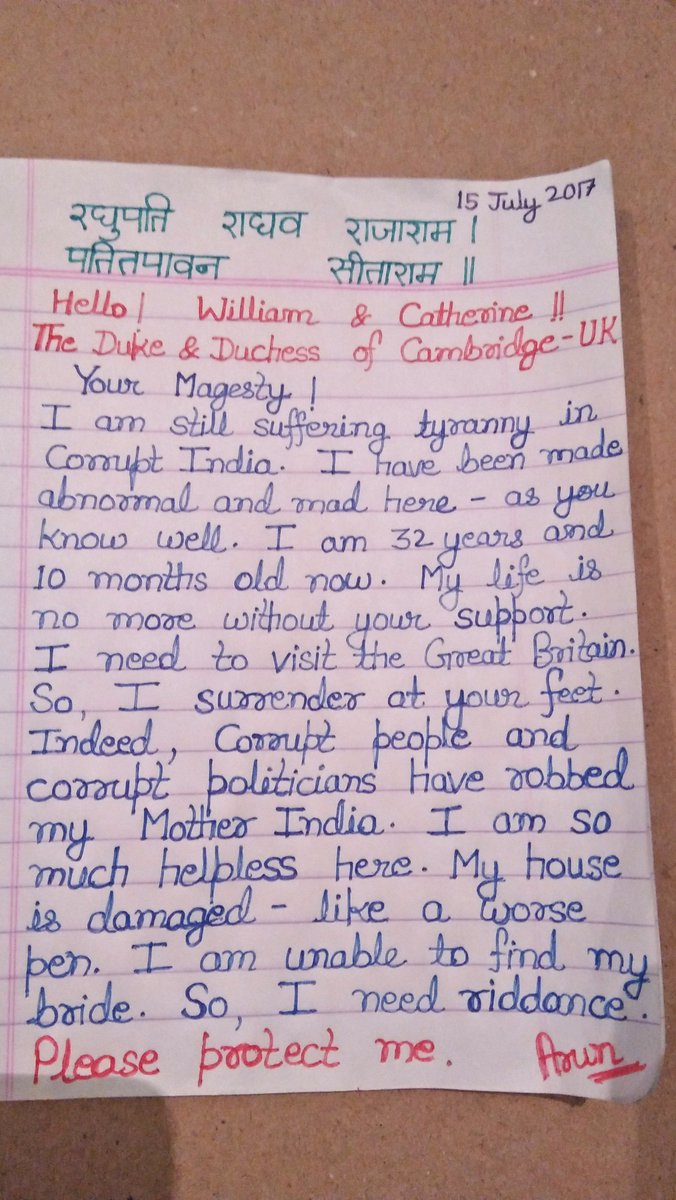 15 July 2017
रघुपति राघव राजाराम।
पतितपावन सीताराम॥
Hello! William & Catherine!!
The Duke & Duchess of Cambridge-UK
Your Magesty!
I am still suffering tyranny in
Corrupt India. I have been made
abnormal and mad here - as you
know well. I am 32 years and
10 months old now. My life is
no more without your support.
I need to visit the Great Britain.
So, I surrender at your feet.
Indeed, Corrupt people and
corrupt politicians have robbed
my Mother India. I am so
much helpless here. My house
is damaged - like a worse
pen. I am unable to find my
bride. So, I need riddance.
Please protect me. Arun